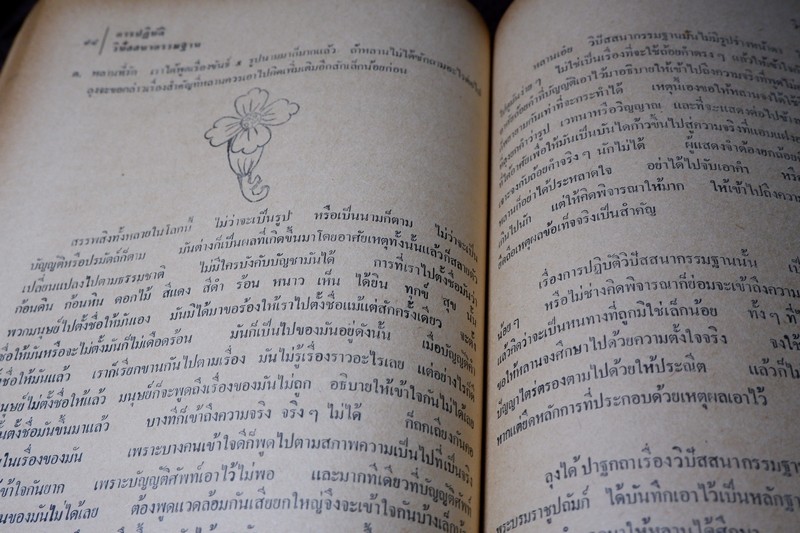 ๙๘ การปฏิบัติ
วิปัสสนากรรมฐาน
ด. หลานที่รัก เราได้พูดเรื่องขันธ์ ๕ รูปนามมาก็มากแล้ว ถ้าหลานไม่ได้ซักถามอะไรต่อไป
ลุงจะขอกล่าวเรื่องสำคัญที่หลานควรเอาไปคิดเพิ่มเติมอีกสักเล็กน้อยก่อน
สรรพสิ่งทั้งหลายในโลกนี้ ไม่ว่าจะเป็นรูป หรือเป็นนามก็ตาม ไม่ว่าจะเป็น
บัญญัติหรือปรมัตถ์ก็ตาม มันต่างก็เป็นผลที่เกิดขึ้นมาโดยอาศัยเหตุทั้งนั้นแล้วก็สลายตัว
เปลี่ยนแปลงไปตามธรรมชาติ ไม่มีใครบังคับบัญชามันได้ การที่เราไปตั้งชื่อมันว่า
ก้อนดิน ก้อนหิน ดอกไม้ สีแดง สีดำ ร้อน หนาว เห็น ได้ยิน ทุกข์ สุข นั้น
พวกมนุษย์ไปตั้งชื่อให้มันเอง มันมิได้มาขอร้องให้เราไปตั้งชื่อแม้แต่สักครั้งเดียว จะตั้ง
ชื่อให้มันหรือจะไม่ตั้งมันก็ไม่เดือดร้อน มันก็เป็นไปของมันอยู่ดังนั้น เมื่อบัญญัติคำ
ชื่อให้มันแล้ว เราก็เรียกขานกันไปตามเรื่อง มันไม่รู้เรื่องราวอะไรเลย แต่อย่างไรก็ดี
มนุษย์ไม่ตั้งชื่อให้แล้ว มนุษย์ก็จะพูดถึงเรื่องของมันไม่ถูก อธิบายให้เข้าใจกันไม่ได้เลย
ตั้งชื่อมันขึ้นมาแล้ว บางทีก็เข้าถึงความจริง จริง ๆ ไม่ได้ ก็ถกเถียงกันคอ
ในเรื่องของมัน เพราะบางคนเข้าใจดีก็พูดไปตามสภาพความเป็นไปที่เป็นจริง
เข้าใจกันยาก เพราะบัญญัติศัพท์เอาไว้ไม่พอ และมากทีเดียวที่บัญญัติศัพท์
นของมันไม่ได้เลย ต้องพูดแวดล้อมกันเสียยกใหญ่จึงจะเข้าใจกันบ้างเล็กน้อย
หลานเอ๋ย วิปัสสนากรรมฐานมันไม่มีรูปร่างหน้าตา
ไม่ใช่เป็นเรื่องที่จะใช้ถ้อยคำตรง ๆ แล้วให้เข้าใจ
อาศัยถ้อยคำที่บัญญัติเอาไว้มาอธิบายให้เข้าไปถึงความจริงที่พูดไม่
พยายามกันเท่าที่จะกระทำได้ เหตุนี้เองขอให้หลานจงได้เข้า
ที่ลุงยกคำว่ารูป เวทนาหรือวิญญาณ และที่จะแสดงต่อไปข้าง
ที่ได้อาศัยเพื่อให้มันเป็นบันไดก้าวขึ้นไปสู่ความจริงที่แอบแฝง
เจาะจงกับถ้อยคำจริง ๆ นักไม่ได้ ผู้แสดงจำต้องยกถ้อย
หลานก็อย่าได้ประหลาดใจ อย่าได้ไปจับเอาคำ
เกินไปนัก แต่ให้คิดพิจารณาให้มาก ให้เข้าไปถึงความ
ยึดถือเหตุผลข้อเท็จจริงเป็นสำคัญ
เรื่องการปฏิบัติวิปัสสนากรรมฐานนั้น
น้อย ๆ หรือไม่ช่างคิดพิจารณาก็ย่อมจะเข้าถึงความ
แล้วคิดว่าจะเป็นหนทางที่ถูกมิใช่เล็กน้อย ทั้ง ๆ ที่
ขอให้หลานจงศึกษาไปด้วยความตั้งใจจริง จงใช้
ปัญญาไตร่ตรองตามไปด้วยให้ประณีต แล้วก็ไม่
หากแต่ยึดหลักการที่ประกอบด้วยเหตุผลเอาไว้
ลุงได้ปาฐกถาเรื่องวิปัสสนากรรมฐาน
พระบรมราชูปถัมภ์ ได้บันทึกเอาไว้เป็นหลักฐาน
ให้หลานได้ศึกษา